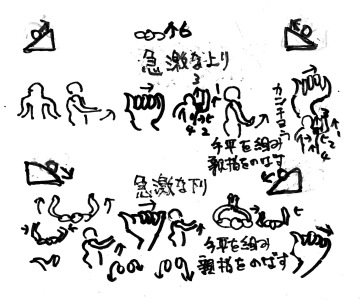 急激な上り
3
1
4 2
手平を組み
親指をのばす
急激な下り
手平を組み
親指をのばす